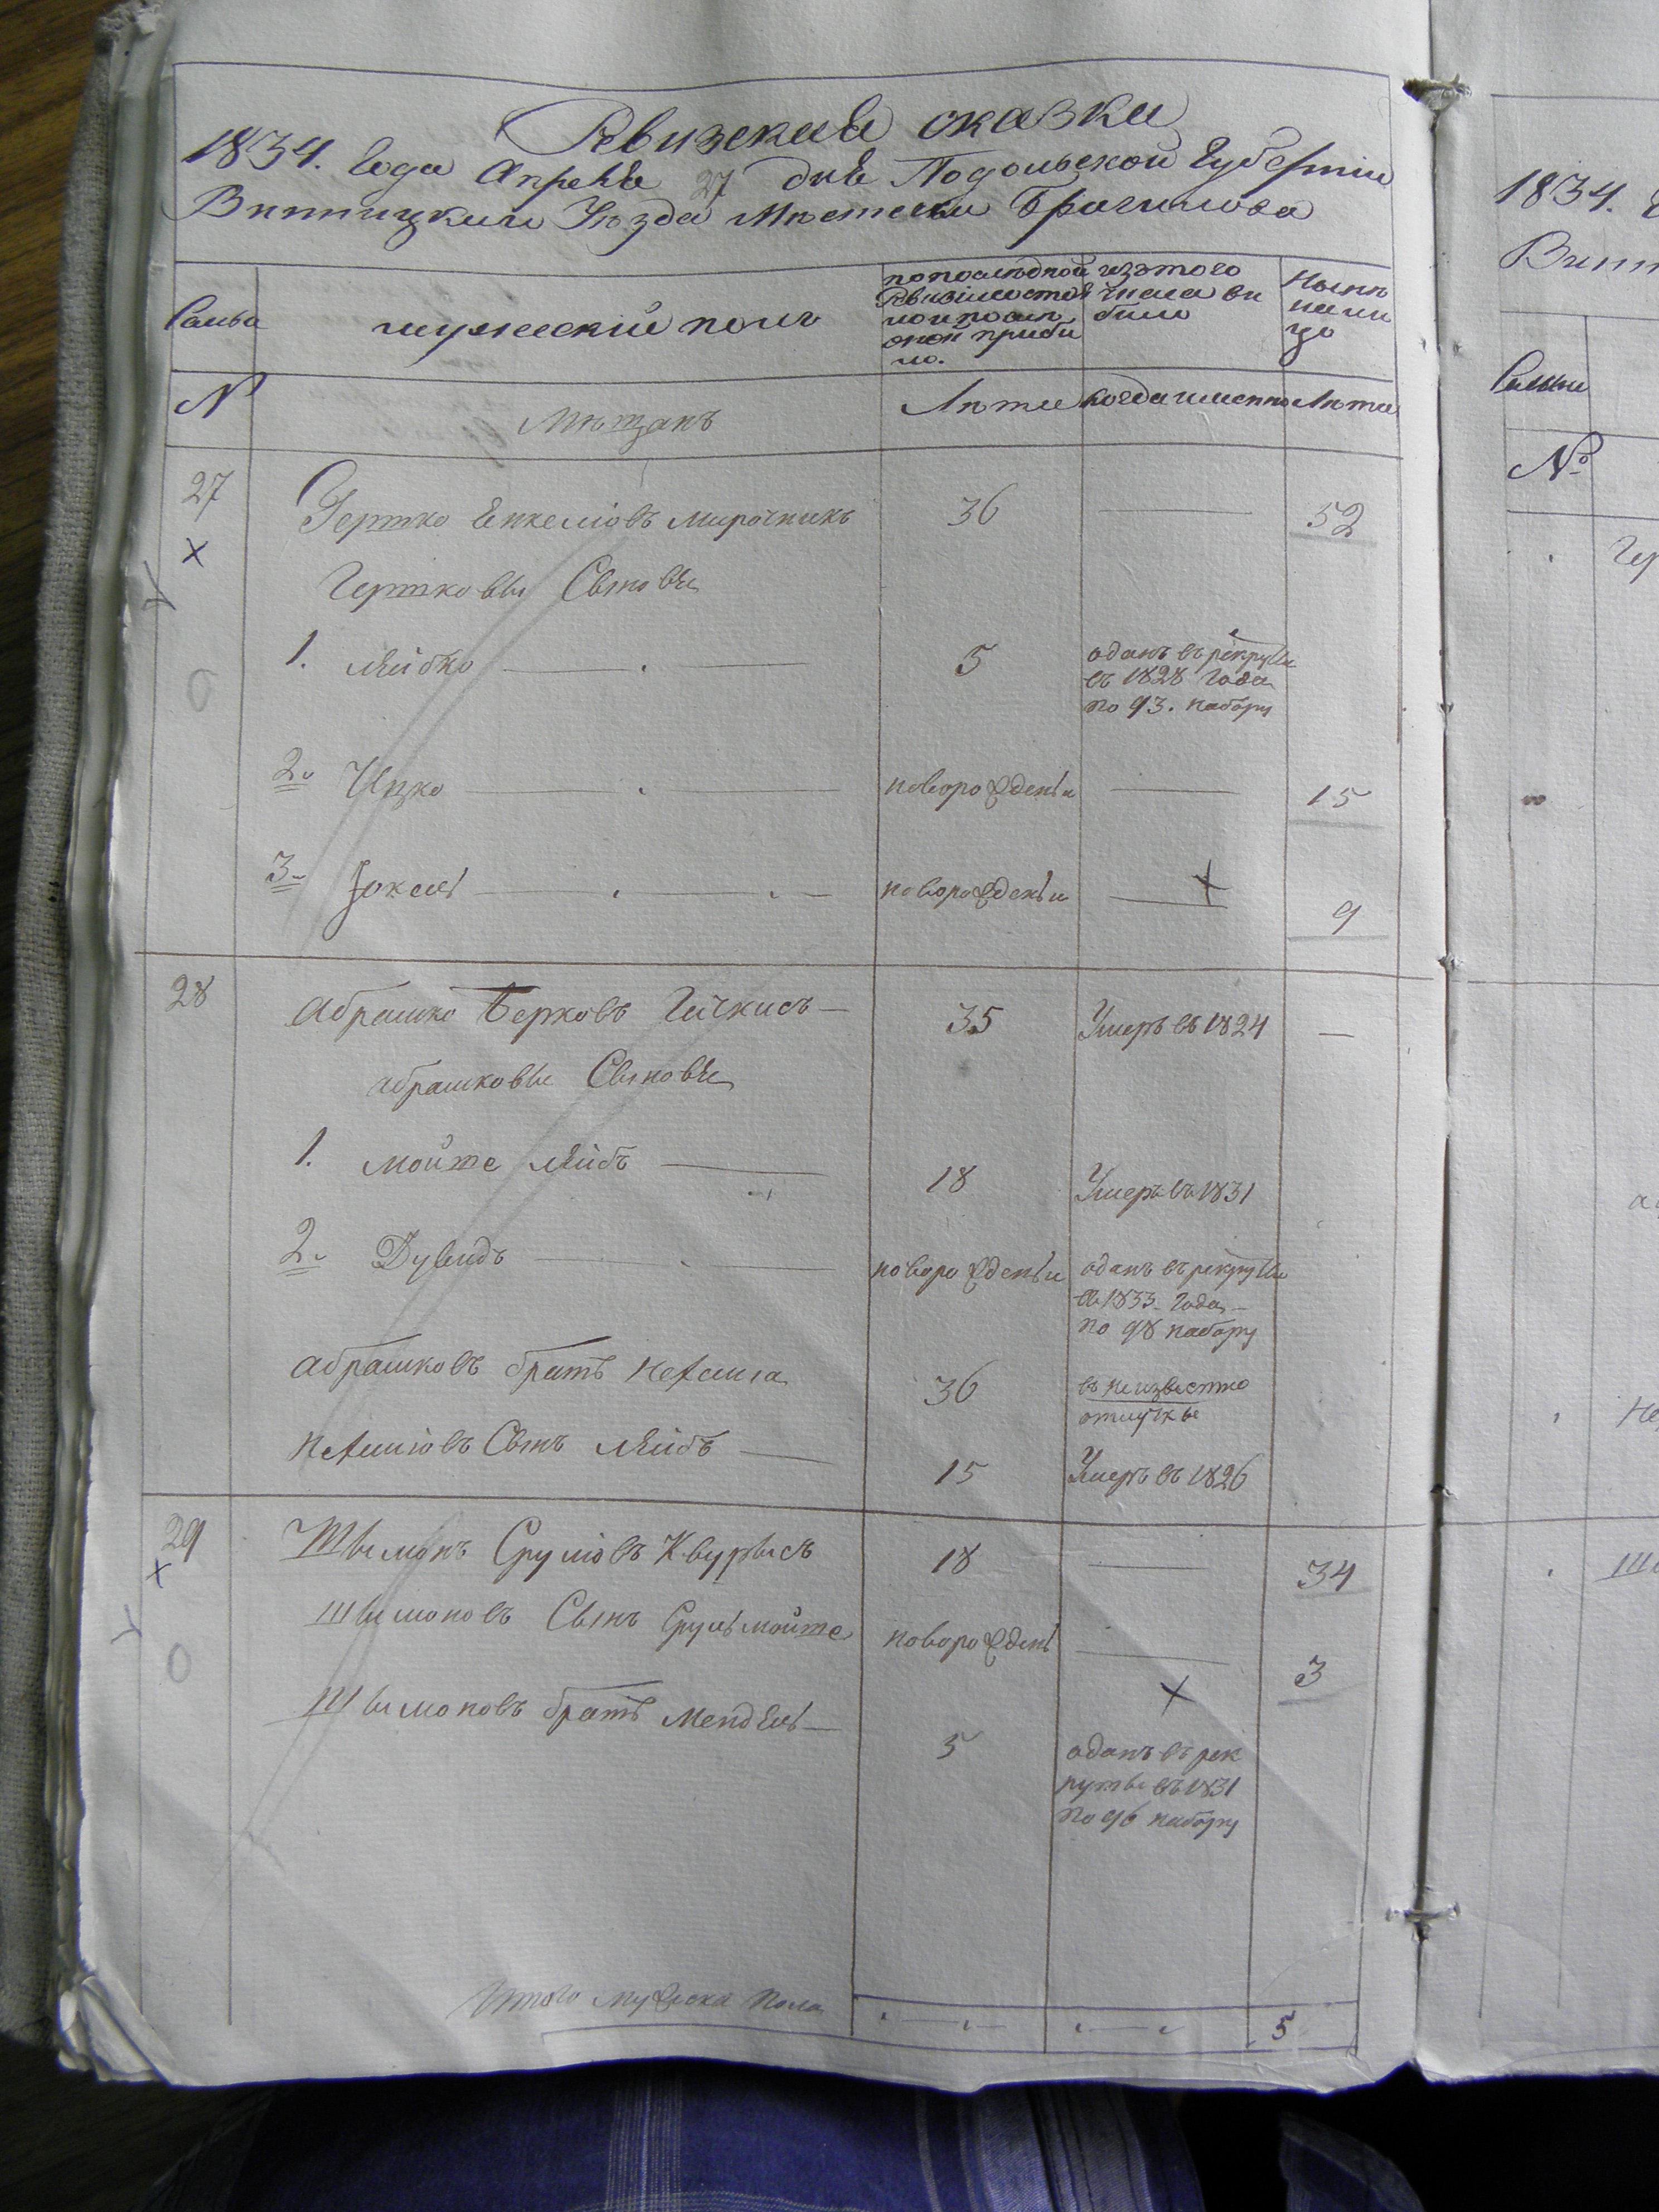 Ревизския сказки
1834. Года Апреля 27 дня Подольской Губернии
Винницкаго Уезда Местечка Браилова
Семья
мужеский полъ
по последной
Ревизии состо
яло и после
оной прибы
ло.
изъ того
числа вы
было
Ныне
на ли
цо
№
Мещанъ
Лета
когда именно
Лета
27
Гершко Енкелювъ Мирочникъ
36
52
Гершковы Сыновья
1. Лейбко
5
оданъ въ рекруты
въ 1828 Года
по 93. набору
2. Ицко
новорожденый
15
3. Іокель
новорожденый
9
28
Абрашко Берковъ Гичкисъ
35
Умеръ въ 1824
Абрашковы Сыновья
1. Мошке Лейбъ
18
Умеръ въ 1831
2. Дувидъ
новорожденый
оданъ въ рекруты
въ 1833 Года
по 98 набору
Абрашковъ братъ Нехемiа
36
въ неизвестно
отлучке
Нехемiовъ Сынъ Лейбъ
15
Умеръ въ 1826
29
Шимонъ Срулiовъ
18
34
Шимоновъ Сынъ Сруль Мошке
новорожден
3
Шимоновъ братъ Мендель
5
оданъ въ рек
руты въ 1831
по 96 набору
Итого мужеска Пола
5
1834.
Винн
Семьи
№
Гер
Не